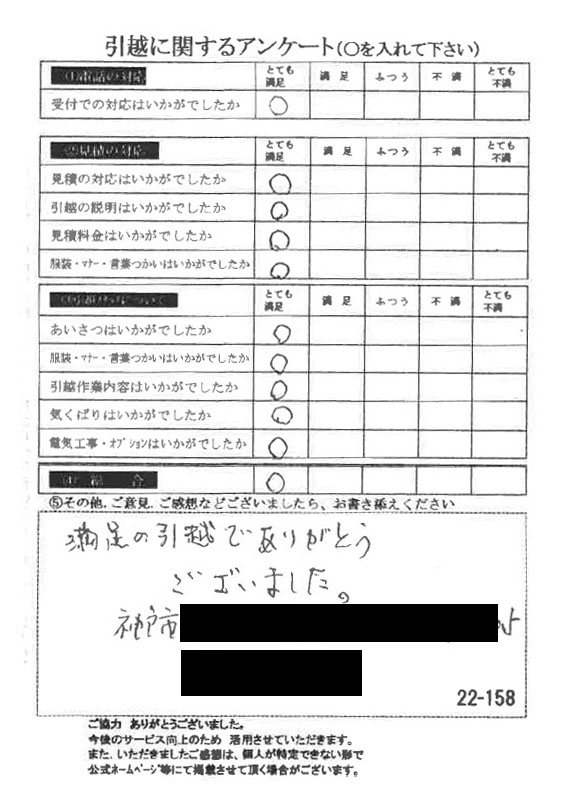 引越に関するアンケート(○を入れて下さい)
①電話の対応 とても満足 満足 ふつう 不満 とても不満
受付での対応はいかがでしたか ○
②見積の対応 とても満足 満足 ふつう 不満 とても不満
見積の対応はいかがでしたか ○
引越の説明はいかがでしたか ○
見積料金はいかがでしたか ○
服装・マナー・言葉つかいはいかがでしたか ○
とても満足 満足 ふつう 不満 とても不満
あいさつはいかがでしたか ○
服装・マナー・言葉つかいはいかがでしたか ○
引越作業内容はいかがでしたか ○
気くばりはいかがでしたか ○
電気工事・オプションはいかがでしたか ○
④総合 ○
⑤その他、ご意見、ご感想などございましたら、お書き添えください
満足の引越でありがとう
ございました。
神戸市
22-158
ご協力 ありがとうございました。
今後のサービス向上のため 活用させていただきます。
また、いただきましたご感想は、個人が特定できない形で
公式ホームページ等にて掲載させて頂く場合がございます。